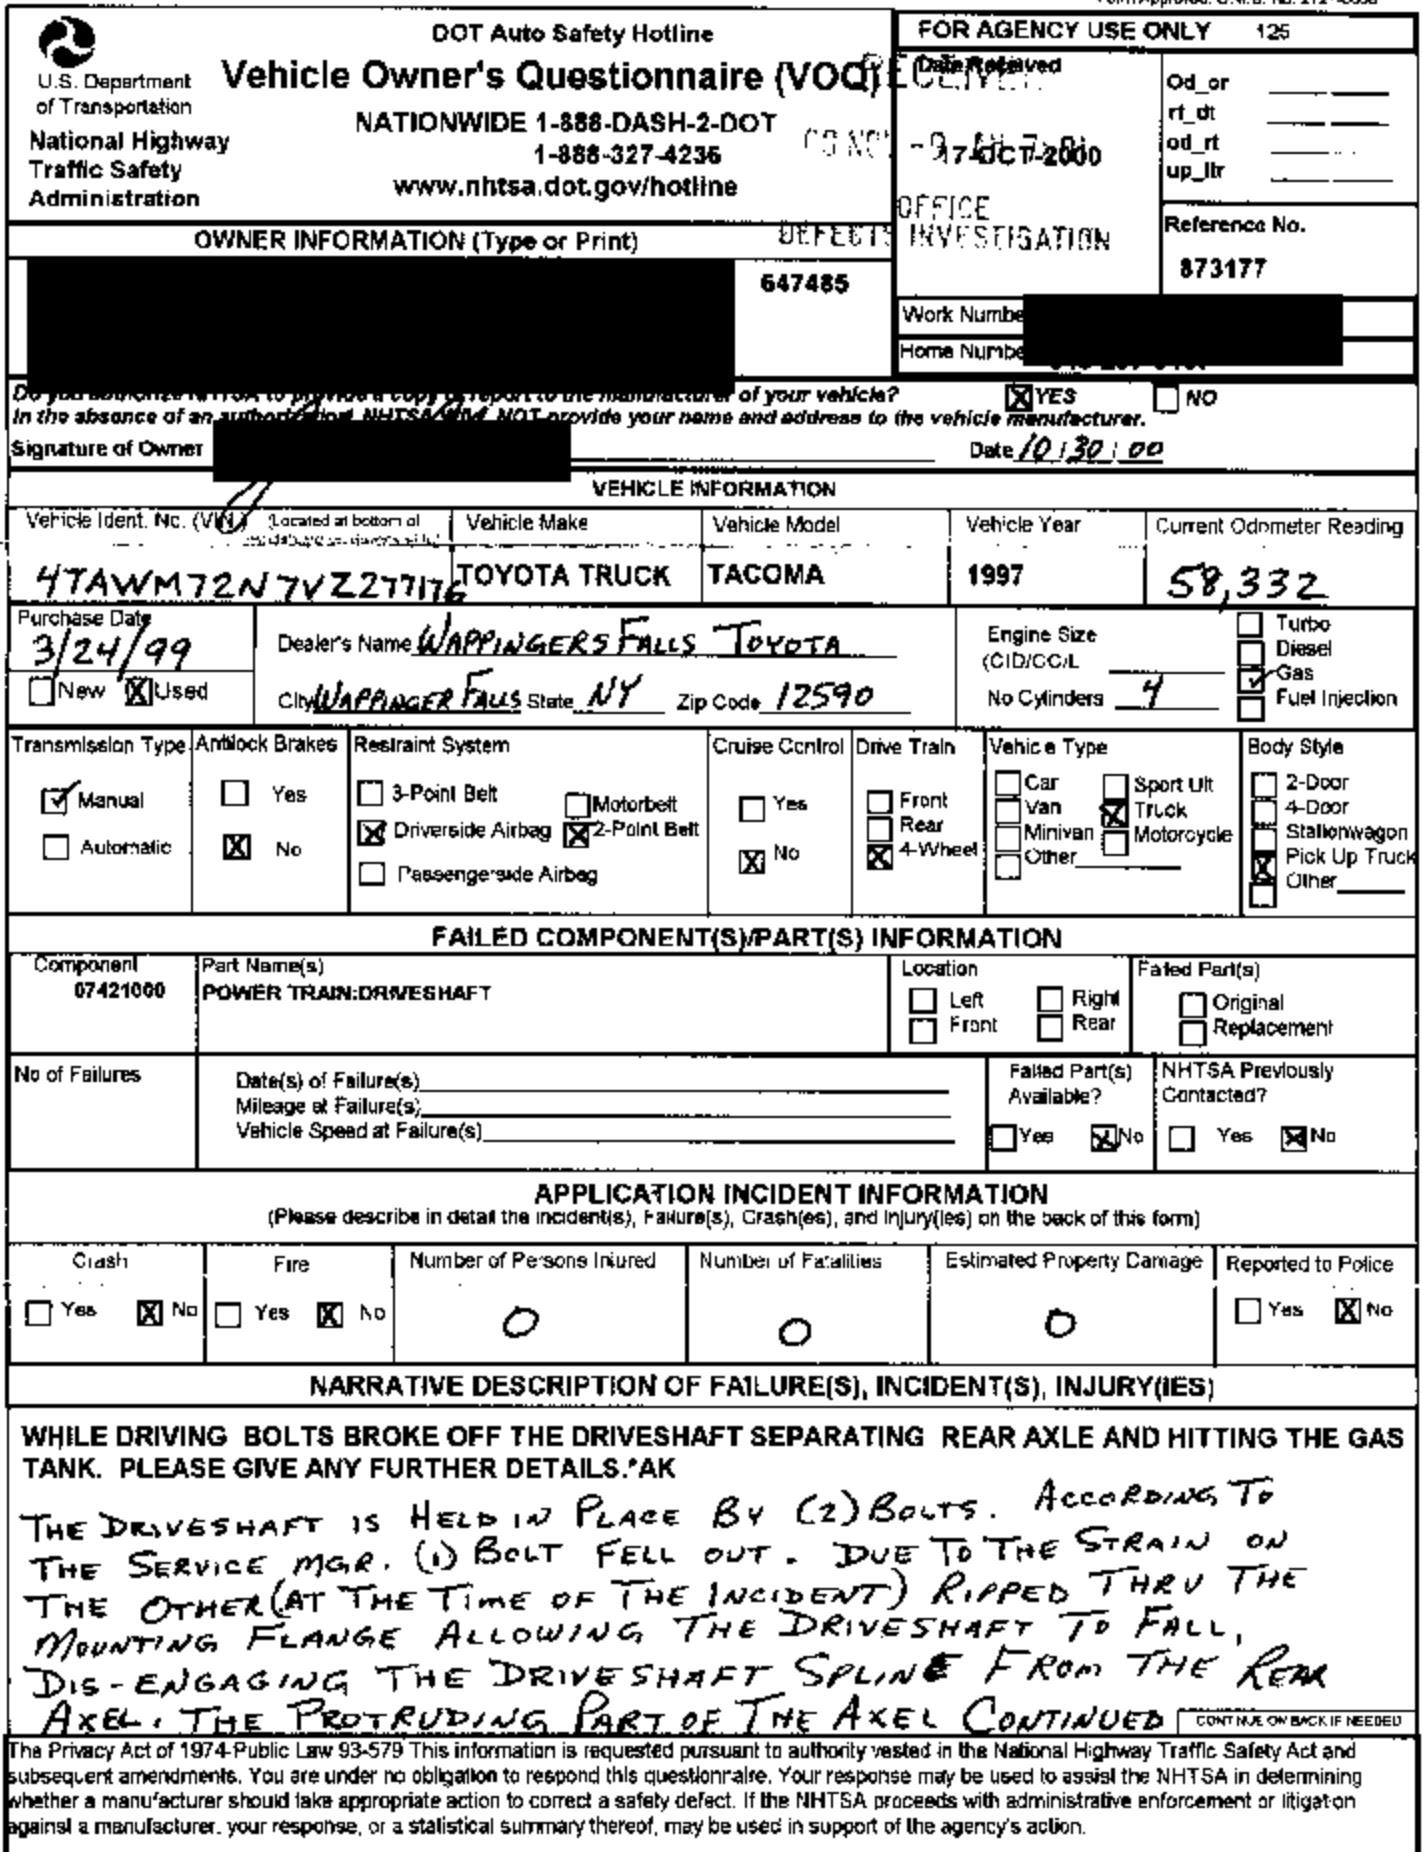 DOT Auto Safety Hotline
Vehicle Owner's Questionnaire (VOQ)
NATIONWIDE 1-888-DASH-2-DOT
1-888-327-4236
www.nhtsa.dot.gov/hotline
U.S. Department
of Transportation
National Highway
Traffic Safety
Administration
FOR AGENCY USE ONLY 125
Date Received
17-OCT-2000
OFFICE
DEFECTS INVESTIGATION
Od_or
rt_dt
od_rt
up_ltr
Reference No.
873177
OWNER INFORMATION (Type or Print)
647485
Work Number
Home Number
Do you authorize NHTSA to provide a copy of report to the manufacturer of your vehicle? YES NO
In the absence of an authorization, NHTSA WILL NOT provide your name and address to the vehicle manufacturer.
Signature of Owner Date 10/30/00
VEHICLE INFORMATION
Vehicle Ident. No. (VIN) (Located at bottom of
Vehicle Make Vehicle Model Vehicle Year Current Odometer Reading
4TAWM72N7VZ277176 TOYOTA TRUCK TACOMA 1997 58,332
Purchase Date
3/24/99
New Used
Dealer's Name WAPPINGERS FALLS TOYOTA
City WAPPINGER FALLS State NY Zip Code 12590
Engine Size
(CID/CC/L
No Cylinders 4
Turbo
Diesel
Gas
Fuel Injection
Transmission Type
Manual
Automatic
Antilock Brakes
Yes
No
Restraint System
3-Point Belt Motorbelt
Driverside Airbag 2-Point Belt
Passengerside Airbag
Cruise Control
Yes
No
Drive Train
Front
Rear
4-Wheel
Vehicle Type
Car Sport Ult
Van Truck
Minivan Motorcycle
Other
Body Style
2-Door
4-Door
Stationwagon
Pick Up Truck
Other
FAILED COMPONENT(S)/PART(S) INFORMATION
Component
07421000
Part Name(s)
POWER TRAIN:DRIVESHAFT
Location
Left Right
Front Rear
Failed Part(s)
Original
Replacement
No of Failures
Date(s) of Failure(s)
Mileage at Failure(s)
Vehicle Speed at Failure(s)
Failed Part(s)
Available?
Yes No
NHTSA Previously
Contacted?
Yes No
APPLICATION INCIDENT INFORMATION
(Please describe in detail the incident(s), Failure(s), Crash(es), and Injury(ies) on the back of this form)
Crash Fire Number of Persons Injured Number of Fatalities Estimated Property Damage Reported to Police
Yes No Yes No 0 0 0 Yes No
NARRATIVE DESCRIPTION OF FAILURE(S), INCIDENT(S), INJURY(IES)
WHILE DRIVING BOLTS BROKE OFF THE DRIVESHAFT SEPARATING REAR AXLE AND HITTING THE GAS
TANK. PLEASE GIVE ANY FURTHER DETAILS.*AK
THE DRIVESHAFT IS HELD IN PLACE BY (2) BOLTS. ACCORDING TO
THE SERVICE MGR. (1) BOLT FELL OUT. DUE TO THE STRAIN ON
THE OTHER (AT THE TIME OF THE INCIDENT) RIPPED THRU THE
MOUNTING FLANGE ALLOWING THE DRIVESHAFT TO FALL,
DIS-ENGAGING THE DRIVESHAFT SPLINE FROM THE REAR
AXEL. THE PROTRUDING PART OF THE AXEL CONTINUED
CONTINUE ON BACK IF NEEDED
The Privacy Act of 1974-Public Law 93-579 This information is requested pursuant to authority vested in the National Highway Traffic Safety Act and
subsequent amendments. You are under no obligation to respond this questionnaire. Your response may be used to assist the NHTSA in determining
whether a manufacturer should take appropriate action to correct a safety defect. If the NHTSA proceeds with administrative enforcement or litigation
against a manufacturer, your response, or a statistical summary thereof, may be used in support of the agency's action.